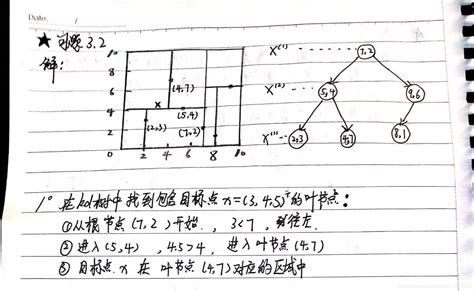 Date. /
★ 习题 3.2
解:
10
8
6
4
2
0
2 4 6 8 10
(4,7)
x
(5,4)
(2,3)
(7,2)
X⁽¹⁾ (7,2)
X⁽²⁾ (5,4) (9,6)
X⁽¹⁾ (2,3) (4,7) (8,1)
1° 在kd树中找到包含目标点 x=(3,4.5)ᵀ的叶节点:
①从根节点 (7,2) 开始, 3<7, 往左
②进入(5,4), 4.5>4, 进入叶节点(4,7)
③目标点 x 在 叶节点(4,7)对应的区域中